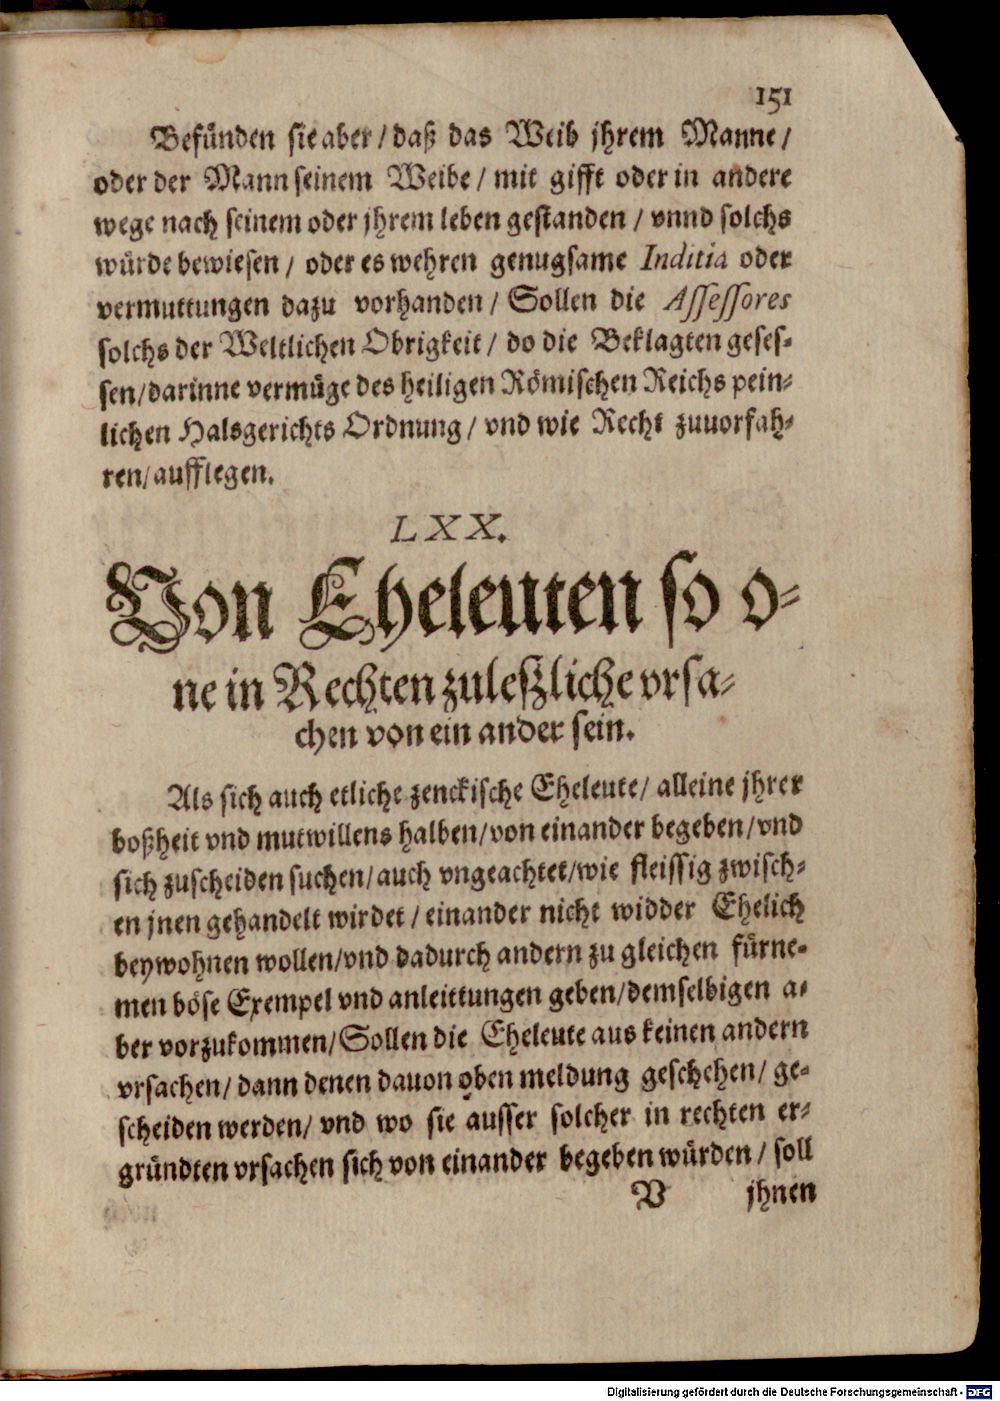 151
Befünden sie aber / daß das Weib jhrem Manne /
oder der Mann seinem Weibe / mit gifft oder in andere
wege nach seinem oder jhrem leben gestanden / vnnd solchs
würde bewiesen / oder es wehren genugsame Inditia oder
vermuttungen dazu vorhanden / Sollen die Assessores
solchs der Weltlichen Obrigkeit / do die Beklagten geses-
sen / darinne vermüge des heiligen Römischen Reichs pein-
lichen Halsgerichts Ordnung / vnd wie Recht zuuorfah-
ren / aufflegen.
LXX.
Von Eheleuten so o-
ne in Rechten zuleßliche vrsa-
chen von ein ander sein.
Als sich auch etliche zenckische Eheleute / alleine jhrer
boßheit vnd mutwillens halben / von einander begeben / vnd
sich zuscheiden suchen / auch vngeachtet / wie fleissig zwisch-
en jnen gehandelt wirdet / einander nicht widder Ehelich
beywohnen wollen / vnd dadurch andern zu gleichen fürne-
men böse Exempel vnd anleittungen geben / demselbigen a-
ber vorzukommen / Sollen die Eheleute aus keinen andern
vrsachen / dann denen dauon oben meldung geschehen / ge-
scheiden werden / vnd wo sie ausser solcher in rechten er-
gründten vrsachen sich von einander begeben würden / soll
V jhnen
Digitalisierung gefördert durch die Deutsche Forschungsgemeinschaft - DFG